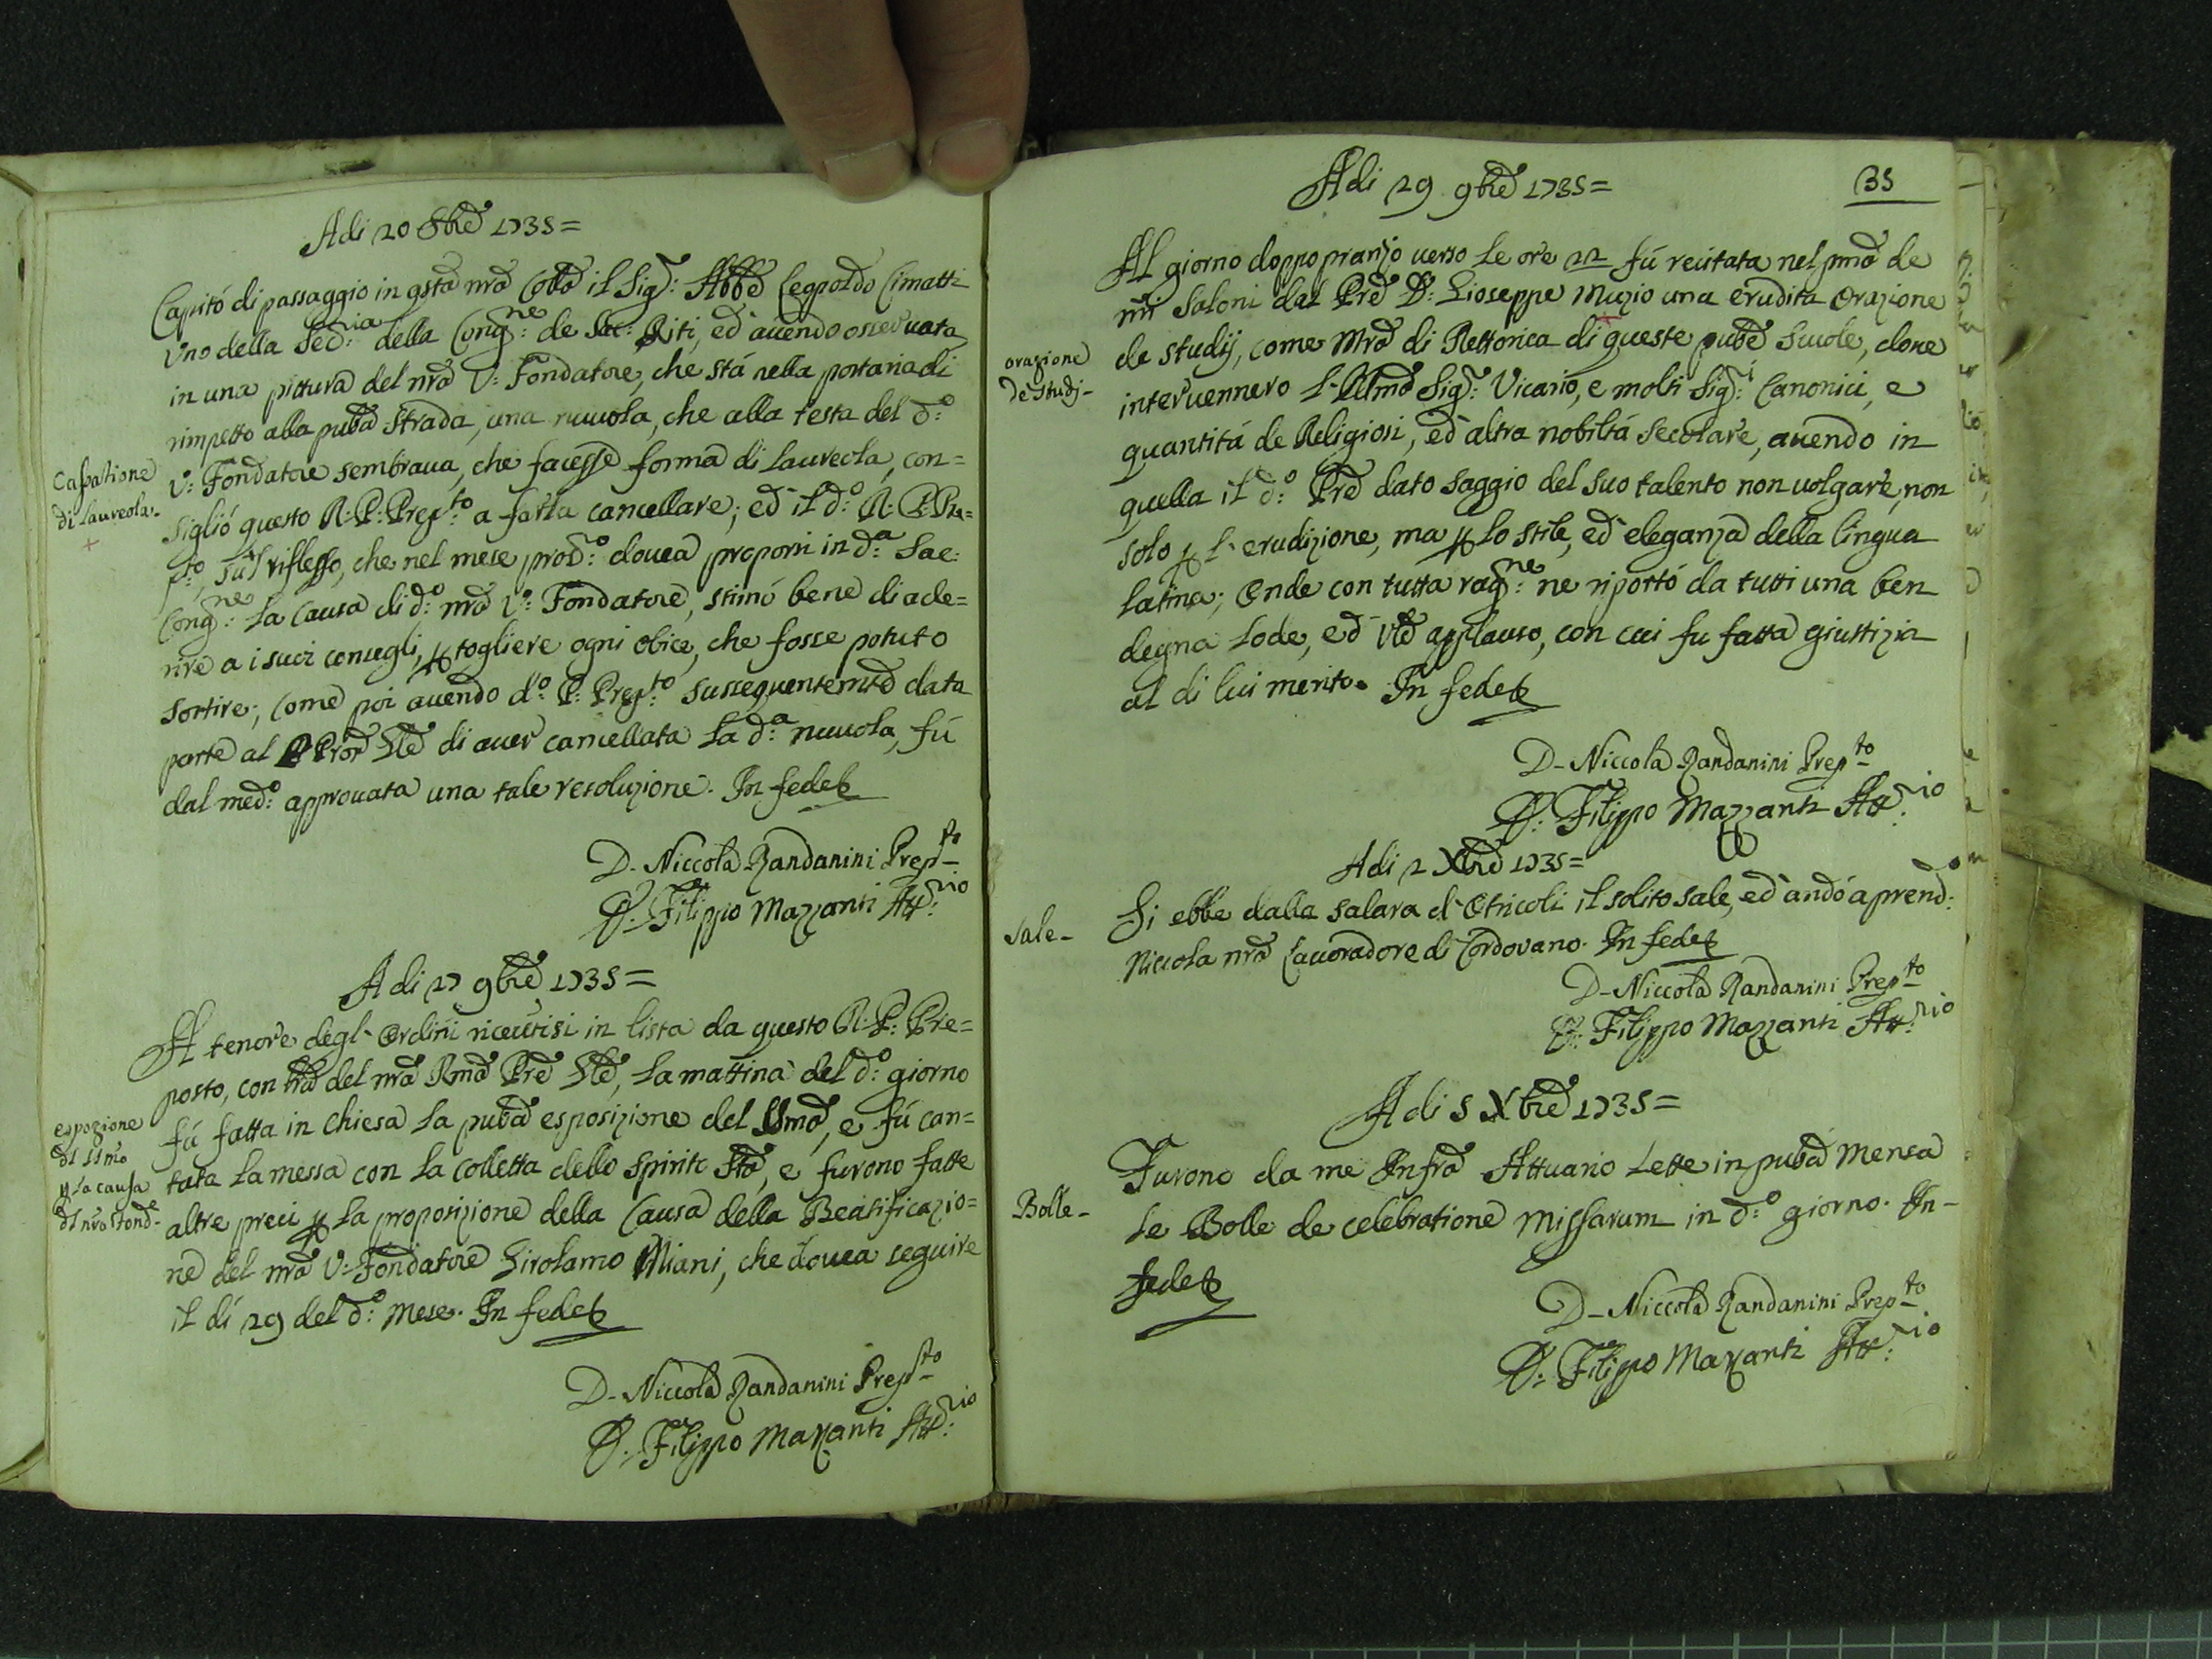 Adi 20 8bre 1735=
Capitó di passaggio in qsta nra Colla il Sigr: Abbe Leopoldo Cimatti
Uno della Sec:ria della Cong:ne de Sac: Riti, ed avendo osservata
in una pittura del nro V: Fondatore, che stá nella portaria di
rimpetto alla pubca strada, una nuvola, che alla testa del d:o
Cassatione
di Laureola.
V: Fondatore sembrava, che facesse forma di Laureola, con=
sigliò questo R: P: Prep:to a farla cancellare; ed il d:o R: P: Pre=
p:to sul riflesso, che nel mese pros:o dovea proporsi in d:a Sac:
Cong:ne la Causa di d:o nro V: Fondatore, stimó bene di ade=
rire a i suoi consegli, p togliere ogni obice, che fosse potuto
sortire; come poi avendo d:o P: Prep:to sussequentemte data
parte al Pror Gle di aver cancellata la d:a nuvola, fú
dal med:o approvata una tale resoluzione. In fede &
D. Niccola Randanini Prep.to
D. Filippo Mazzanti Att:rio
Adi 27 9bre 1735=
Al tenore degl' Ordini ricevutisi in lista da questo R: P: Pre=
posto, con lra del nro Rmo Pre Gle, la mattina del d:o giorno
espozione
dl SSmo
p la causa
dl nro Fond.e
fú fatta in Chiesa la pubca esposizione del SSmo, e fú can=
tata la messa con la colletta dello Spirito Sto, e furono fatte
altre preci p la proposizione della Causa della Beatificazio=
ne del nro V: Fondatore Girolamo Miani, che dovea seguire
il dí 29 del d:o Mese. In fede &
D. Niccola Randanini Prep.to
D. Filippo Mazzanti Att:rio
Adi 29 9bre 1735=
35
Al giorno doppo pranzo verso le ore 22 fú recitata nel pmo de
nri Saloni dal Pre D: Gioseppe Muzio una erudita Orazione
orazione
de Studj-
de studij, come Mro di Rettorica di queste pubce Scuole, dove
intervennero l'Illmo Sigr: Vicario, e molti Sigr:i Canonici, e
quantitá de Religiosi, ed altra nobiltá secolare, avendo in
quella il d:o Pre dato saggio del suo talento non volgare, non
solo p l'erudizione, ma p lo stile, ed eleganza della lingua
latina; Onde con tutta rag:ne ne riportó da tutti una ben
degna lode, ed vle applauso, con cui fu fatta giustizia
al di lui merito. In fede &
D. Niccola Randanini Prep.to
D. Filippo Mazzanti Att:rio
Adi 2 Xbre 1735=
Sale-
Si ebbe dalla Salara d'Otricoli il solito sale, ed andó a prend:lo
Niccola nro Lavoradore di Cordovano. In fede &
D. Niccola Randanini Prep.to
D. Filippo Mazzanti Att:rio
Adi 5 Xbre 1735=
Furono da me Infro Attuario Lette in pubca Mensa
Bolle-
le Bolle de celebratione Missarum in d:o giorno. In-
fede &
D. Niccola Randanini Prep.to
D. Filippo Mazzanti Att:rio